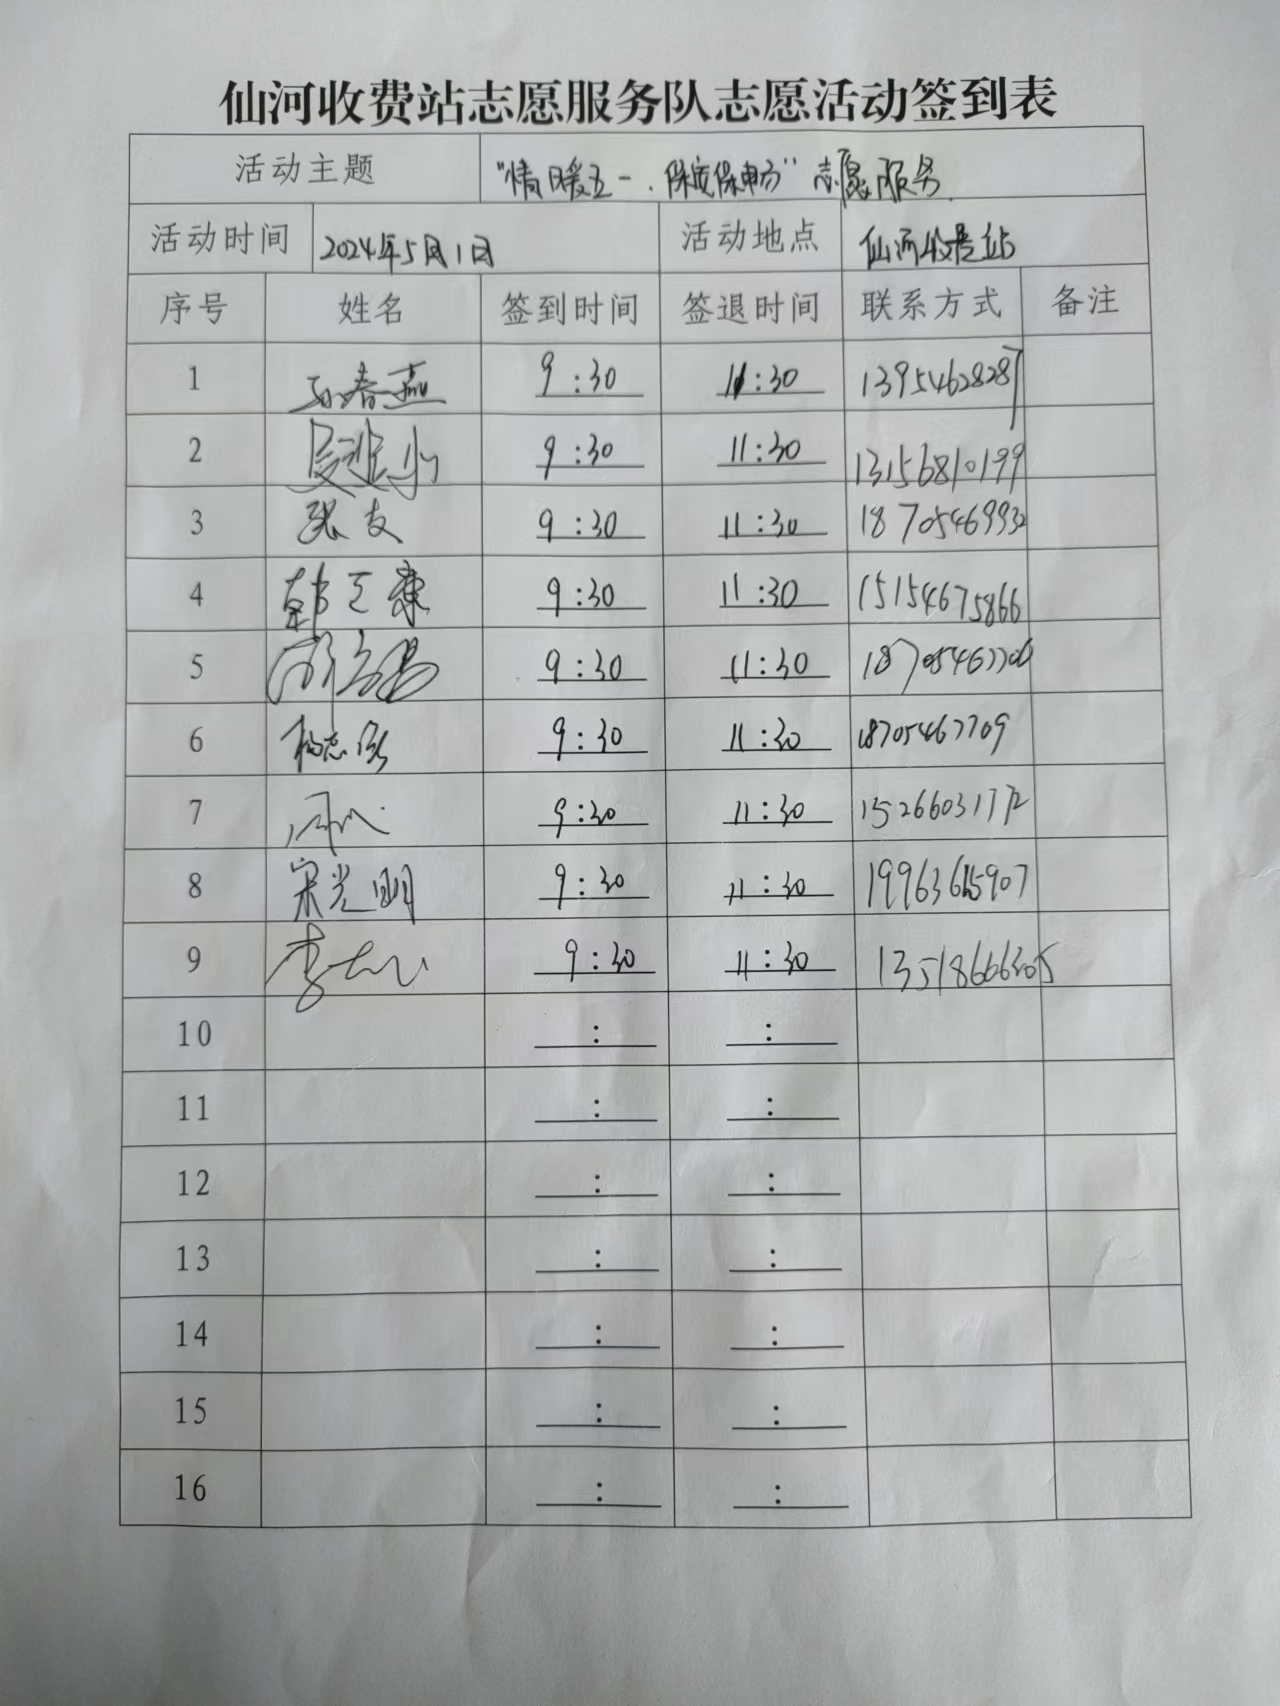 仙河收费站志愿服务队志愿活动签到表
活动主题 "情暖五一、保安保畅"志愿服务
活动时间 2024年5月1日 活动地点 仙河收费站
序号 姓名 签到时间 签退时间 联系方式 备注
1 孙春燕 9:30 11:30 13954628287
2 9:30 11:30 13156810199
3 张友 9:30 11:30 18705469932
4 韩文康 9:30 11:30 15154675866
5 9:30 11:30
6 杨志 9:30 11:30 18705467709
7 9:30 11:30
8 宋光明 9:30 11:30
9 李 9:30 11:30
10 : :
11 : :
12 : :
13 : :
14 : :
15 : :
16 : :